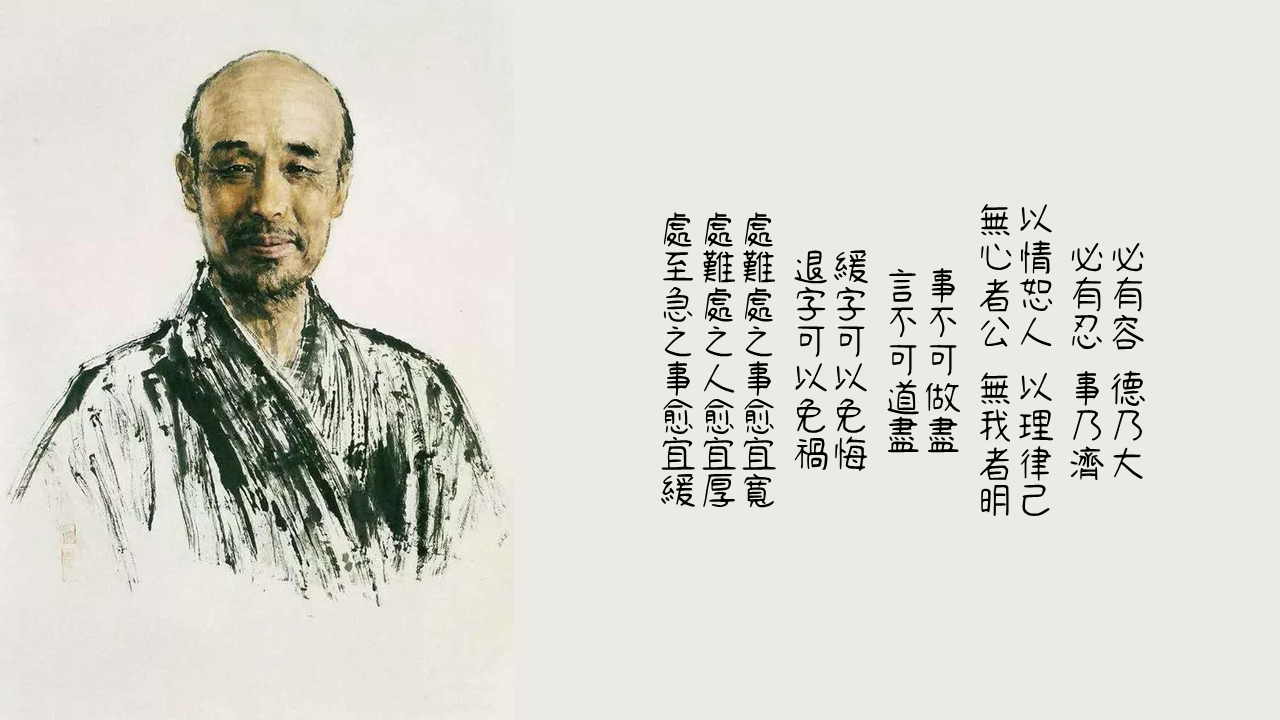 必有容 德乃大
必有忍 事乃濟
以情恕人 以理律己
無心者公 無我者明
事不可做盡
言不可道盡
緩字可以免悔
退字可以免禍
處難處之事愈宜寬
處難處之人愈宜厚
處至急之事愈宜緩